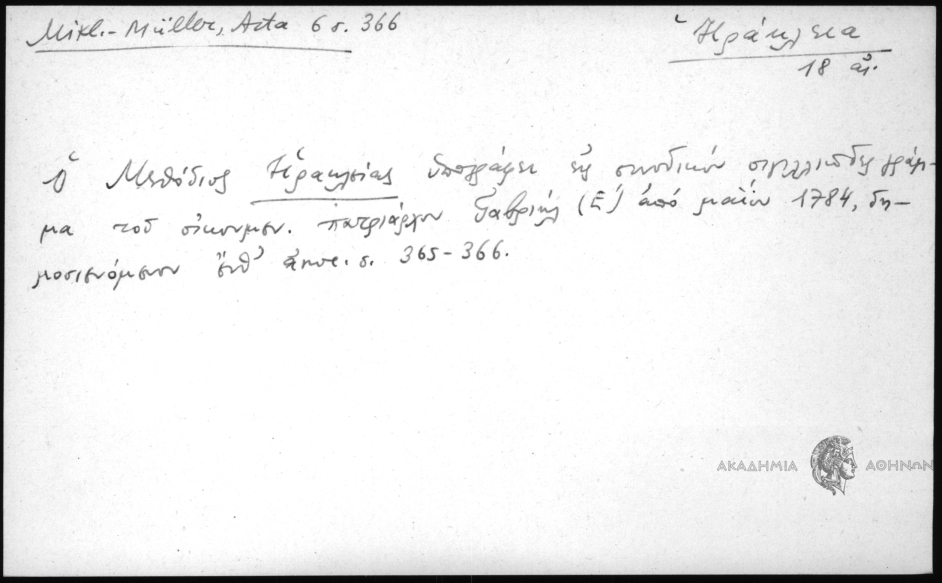 Mikl.-Müller, Acta 6 σ. 366
Ἡράκλεια
18 αἰ.
Ὁ Μεθόδιος Ἡρακλείας ὑπογράφει εἰς συνοδικόν σιγιλλιῶδες γράμ-
μα τοῦ οἰκουμεν. πατριάρχου Γαβριήλ (Ε΄) ἀπό μαΐου 1784, δη-
μοσιευόμενον ἔνθ' ἀνωτ. σ. 365-366.
ΑΚΑΔΗΜΙΑ ΑΘΗΝΩΝ